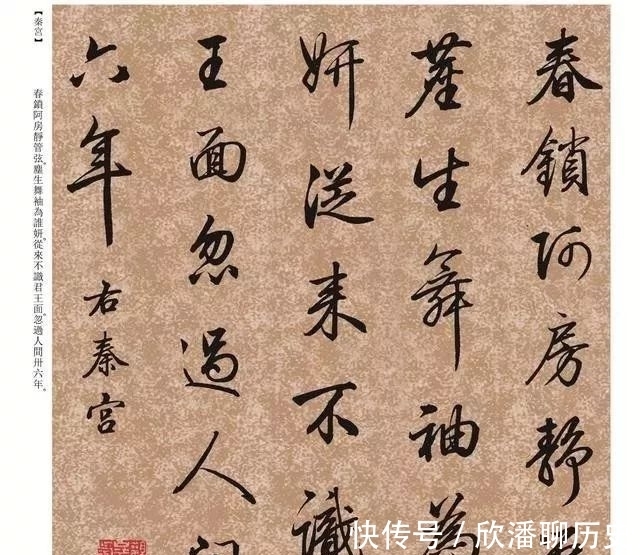 春鎖阿房靜
塵生舞袖為
妍從来不識
王面忽過人間
六年
右秦宮
【秦宮】
春鎖阿房靜管弦。塵生舞袖為誰妍。從來不識君王面。忽過人間卅六年。
快传号 / 欣潘聊历史